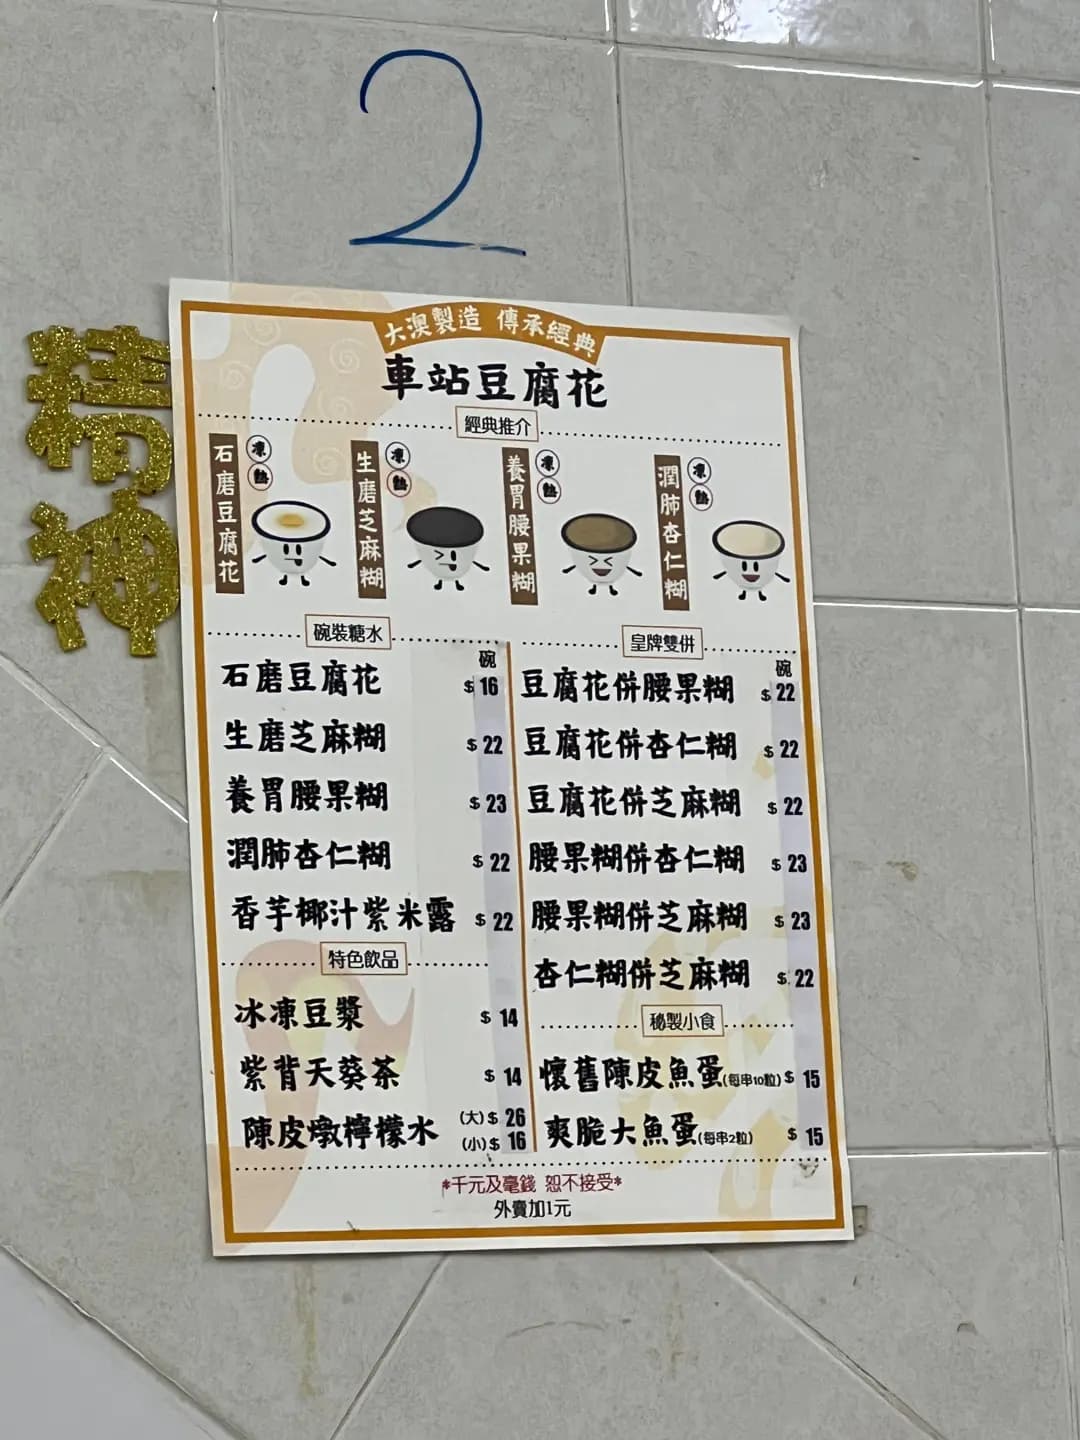 2
精神
大澳製造 傳承經典
車站豆腐花
經典推介
石磨豆腐花
凍
熱
生磨芝麻糊
凍
熱
養胃腰果糊
凍
熱
潤肺杏仁糊
凍
熱
碗裝糖水
碗
石磨豆腐花 $16
生磨芝麻糊 $22
養胃腰果糊 $23
潤肺杏仁糊 $22
香芋椰汁紫米露 $22
特色飲品
冰凍豆漿 $14
紫背天葵茶 $14
陳皮燉檸檬水 (大)$26
(小)$16
皇牌雙併
碗
豆腐花併腰果糊 $22
豆腐花併杏仁糊 $22
豆腐花併芝麻糊 $22
腰果糊併杏仁糊 $23
腰果糊併芝麻糊 $23
杏仁糊併芝麻糊 $22
秘製小食
懷舊陳皮魚蛋(每串10粒) $15
爽脆大魚蛋(每串2粒) $15
*千元及毫錢 恕不接受*
外賣加1元